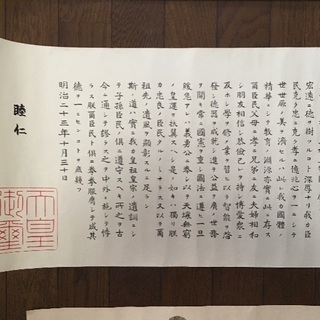 宏遠ニ德ヲ樹ツルコト深厚ナリ我カ臣
民克ク忠ニ克ク孝ニ億兆心ヲ一ニシテ
世世厥ノ美ヲ濟セルハ此レ我カ國體ノ
精華ニシテ教育ノ淵源亦實ニ此ニ存ス
爾臣民父母ニ孝ニ兄弟ニ友ニ夫婦相和
シ朋友相信シ恭儉己レヲ持シ博愛衆ニ
及ホシ學ヲ修メ業ヲ習ヒ以テ智能ヲ啓
發シ德器ヲ成就シ進テ公益ヲ廣メ世務
ヲ開キ常ニ國憲ヲ重シ國法ニ遵ヒ一旦
緩急アレハ義勇公ニ奉シ以テ天壤無窮
ノ皇運ヲ扶翼スヘシ是ノ如キハ獨リ朕
カ忠良ノ臣民タルノミナラス又以テ爾
祖先ノ遺風ヲ顯彰スルニ足ラン
斯ノ道ハ實ニ我カ皇祖皇宗ノ遺訓ニシ
テ子孫臣民ノ俱ニ遵守スヘキ所之ヲ古
今ニ通シテ謬ラス之ヲ中外ニ施シテ悖
ラス朕爾臣民ト俱ニ拳拳服膺シテ咸其
德ヲ一ニセンコトヲ庶幾フ
明治二十三年十月三十日
睦仁
天皇
御璽